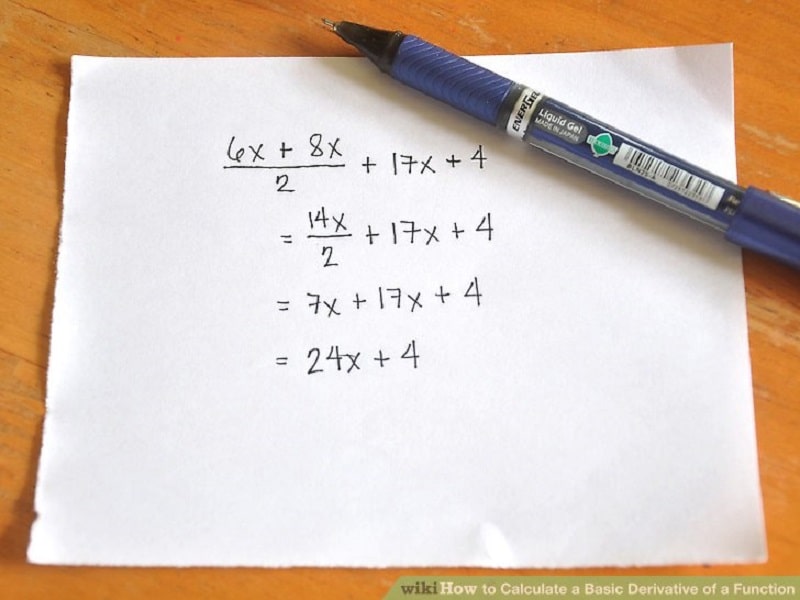 (6x + 8x)/2 + 17x + 4
= 14x/2 + 17x + 4
= 7x + 17x + 4
= 24x + 4
ENERGEL
Liquid Gel
MADE IN JAPAN
wiki How to Calculate a Basic Derivative of a Function